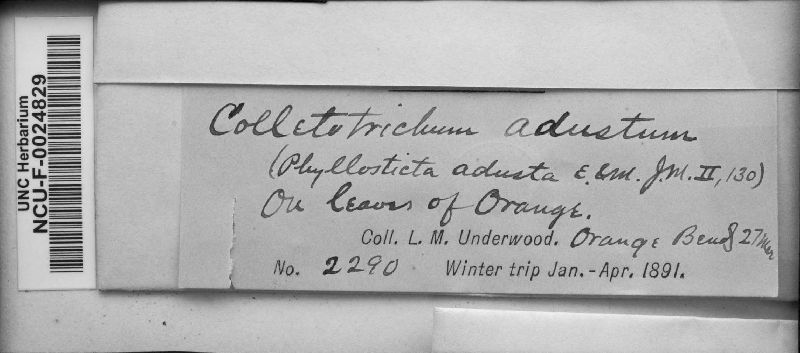 UNC Herbarium
NCU-F-0024829
Colletotrichum adustum
(Phyllosticta adusta E. & M. J.M. II, 130)
On leaves of Orange.
Coll. L. M. Underwood. Orange Bend 27 Mar
No. 2290 Winter trip Jan.-Apr. 1891.